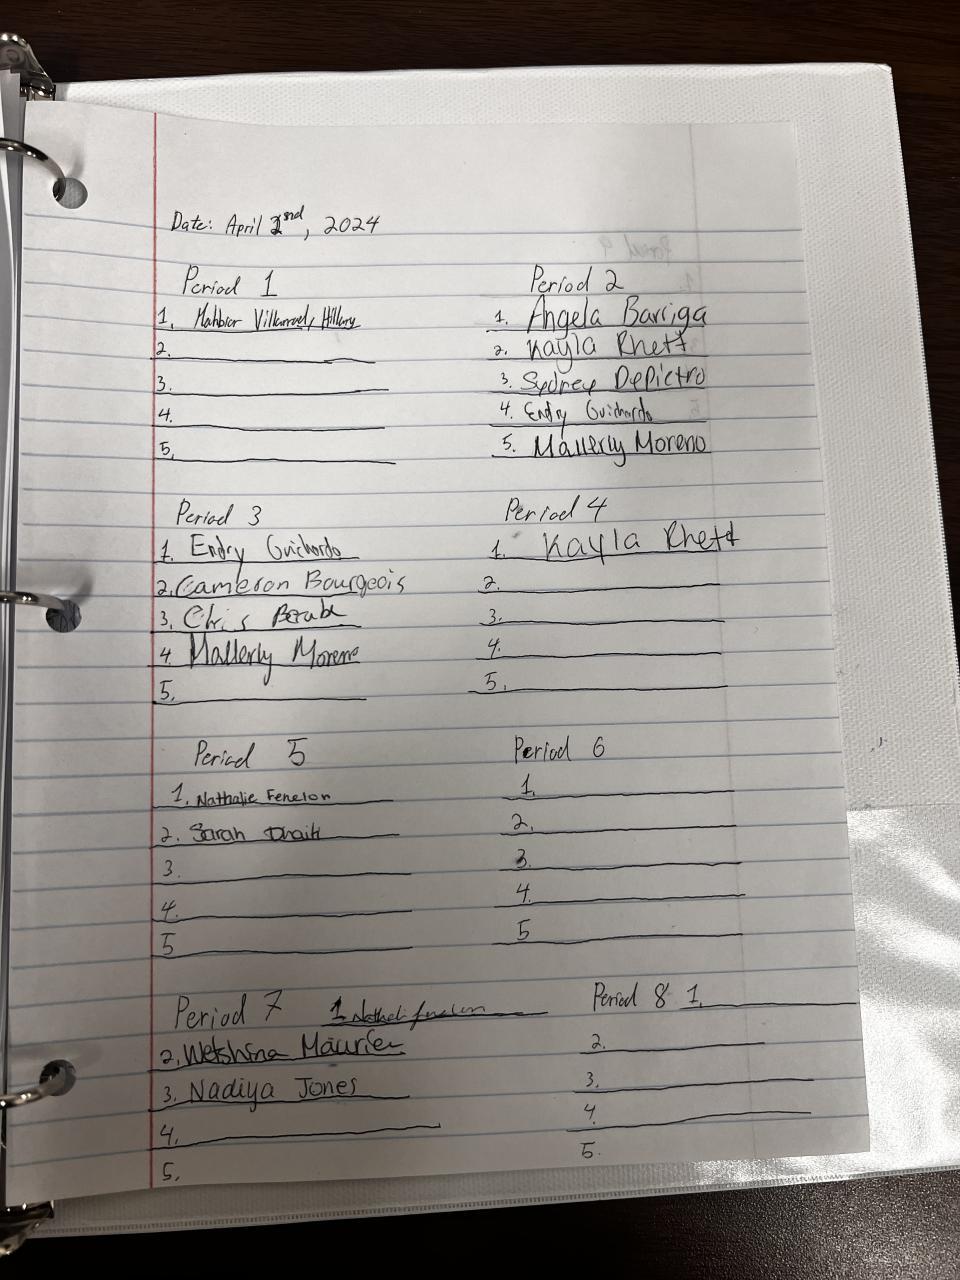 Date: April 2nd, 2024
Period 1
1. Villarroel, Hillary
2.
3.
4.
5.
Period 2
1. Angela Barriga
2. Kayla Rhett
3. Sydney DePietro
4. Endry Guichardo
5. Mallerly Moreno
Period 3
1. Endry Guichardo
2. Cameron Bourgeois
3. Chris Berube
4. Mallerly Moreno
5.
Period 4
1. Kayla Rhett
2.
3.
4.
5.
Period 5
1. Nathalie Fenelon
2. Sarah
3.
4.
5
Period 6
1.
2.
3.
4.
5
Period 7
1. Nathali fenelon
2. Maurier
3. Nadiya Jones
4.
5.
Period 8
1.
2.
3.
4.
5.